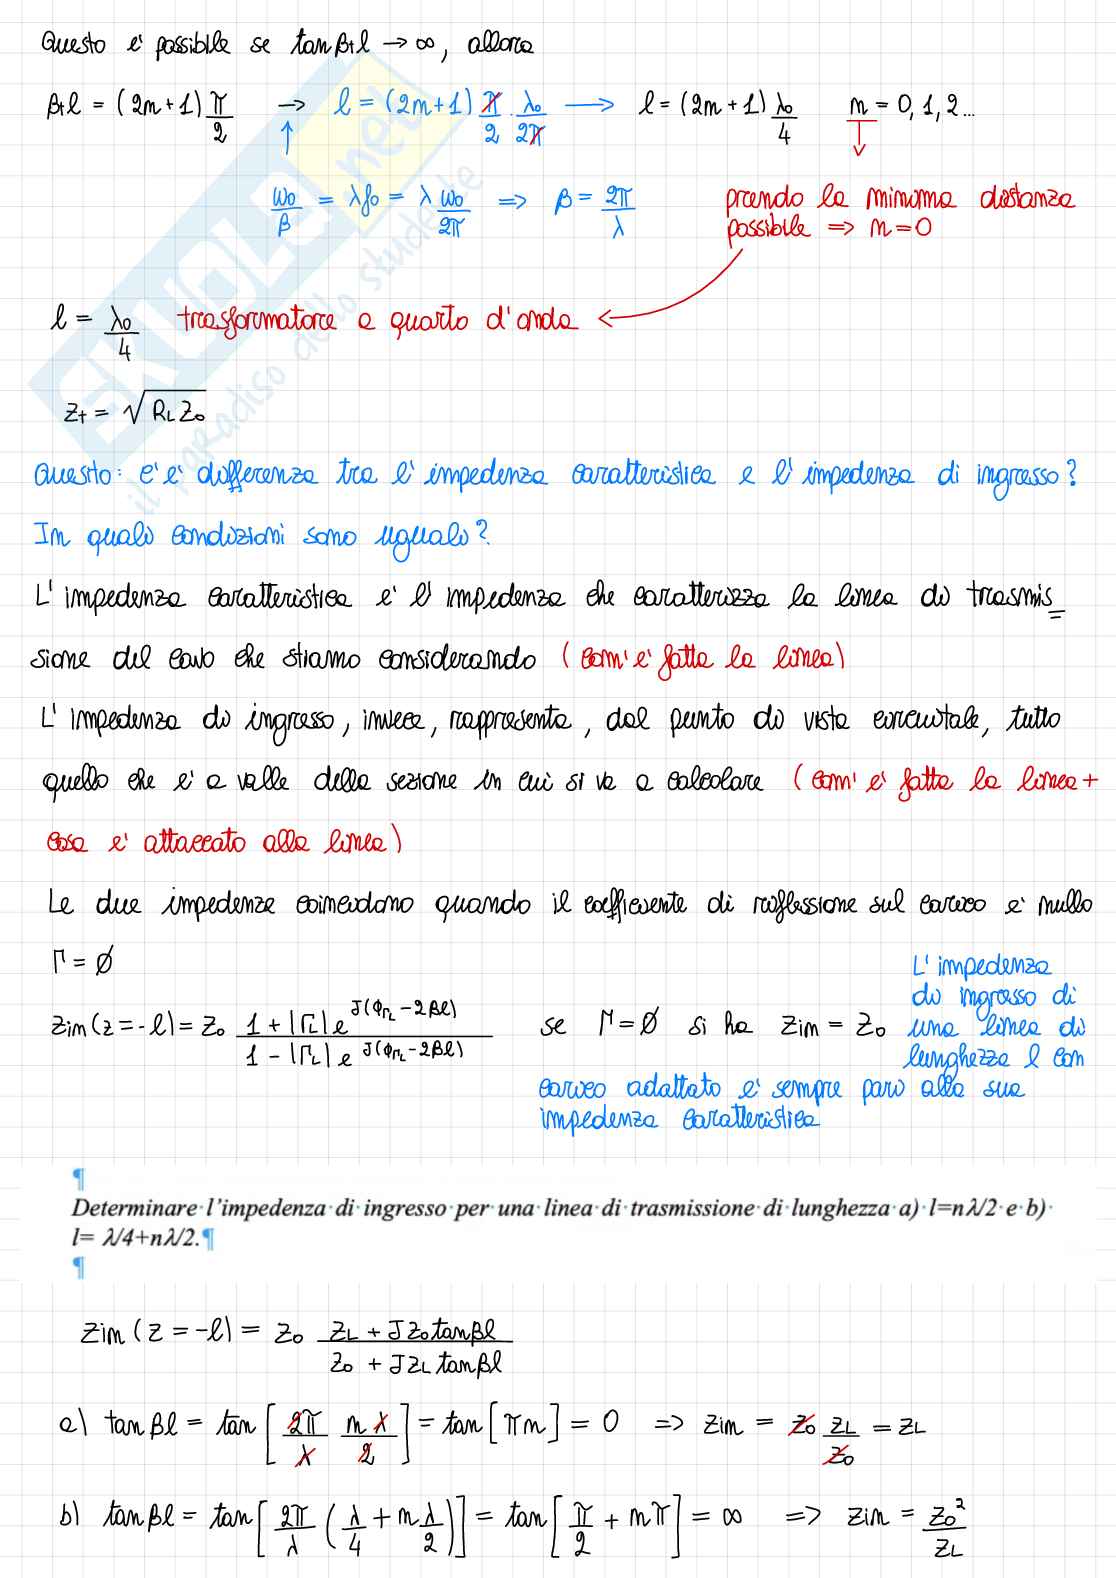 Questo e' possibile se tanβtl → ∞, allora
βtl = (2n+1) π/2 → l = (2n+1) π/2 · λ0/2π → l = (2n+1) λ0/4 n = 0, 1, 2...
ω0/β = λf0 = λ ω0/2π => β = 2π/λ
prendo la minima distanza
possibile => n = 0
l = λ0/4 trasformatore a quarto d'onda
Zt = √RL Z0
Quesito: c'e' differenza tra l'impedenza caratteristica e l'impedenza di ingresso?
In quali condizioni sono uguali?
L'impedenza caratteristica e' l'impedenza che caratterizza la linea di trasmis
sione del cavo che stiamo considerando (com'e' fatta la linea)
L'impedenza di ingresso, invece, rappresenta, dal punto di vista circuitale, tutto
quello che e' a valle della sezione in cui si va a calcolare (com'e' fatta la linea +
cosa e' attaccato alla linea)
Le due impedenze coincidono quando il coefficiente di riflessione sul carico e' nullo
Γ = ∅
Zin(z=-l) = Z0 (1 + |ΓL| e^J(ΦΓL - 2βl)) / (1 - |ΓL| e^J(ΦΓL - 2βl)) se Γ = ∅ si ha Zin = Z0
L'impedenza
di ingresso di
una linea di
lunghezza l con
carico adattato e' sempre pari alla sua
impedenza caratteristica
¶
Determinare·l'impedenza·di·ingresso·per·una·linea·di·trasmissione·di·lunghezza·a)·l=nλ/2·e·b)·
l=·λ/4+nλ/2.¶
¶
Zin(z=-l) = Z0 (ZL + JZ0 tanβl) / (Z0 + JZL tanβl)
a) tanβl = tan[2π/λ nλ/2] = tan[πn] = 0 => Zin = Z0 ZL/Z0 = ZL
b) tanβl = tan[2π/λ (λ/4 + nλ/2)] = tan[π/2 + nπ] = ∞ => Zin = Z0²/ZL
SKUOLA.net
il paradiso dello studente